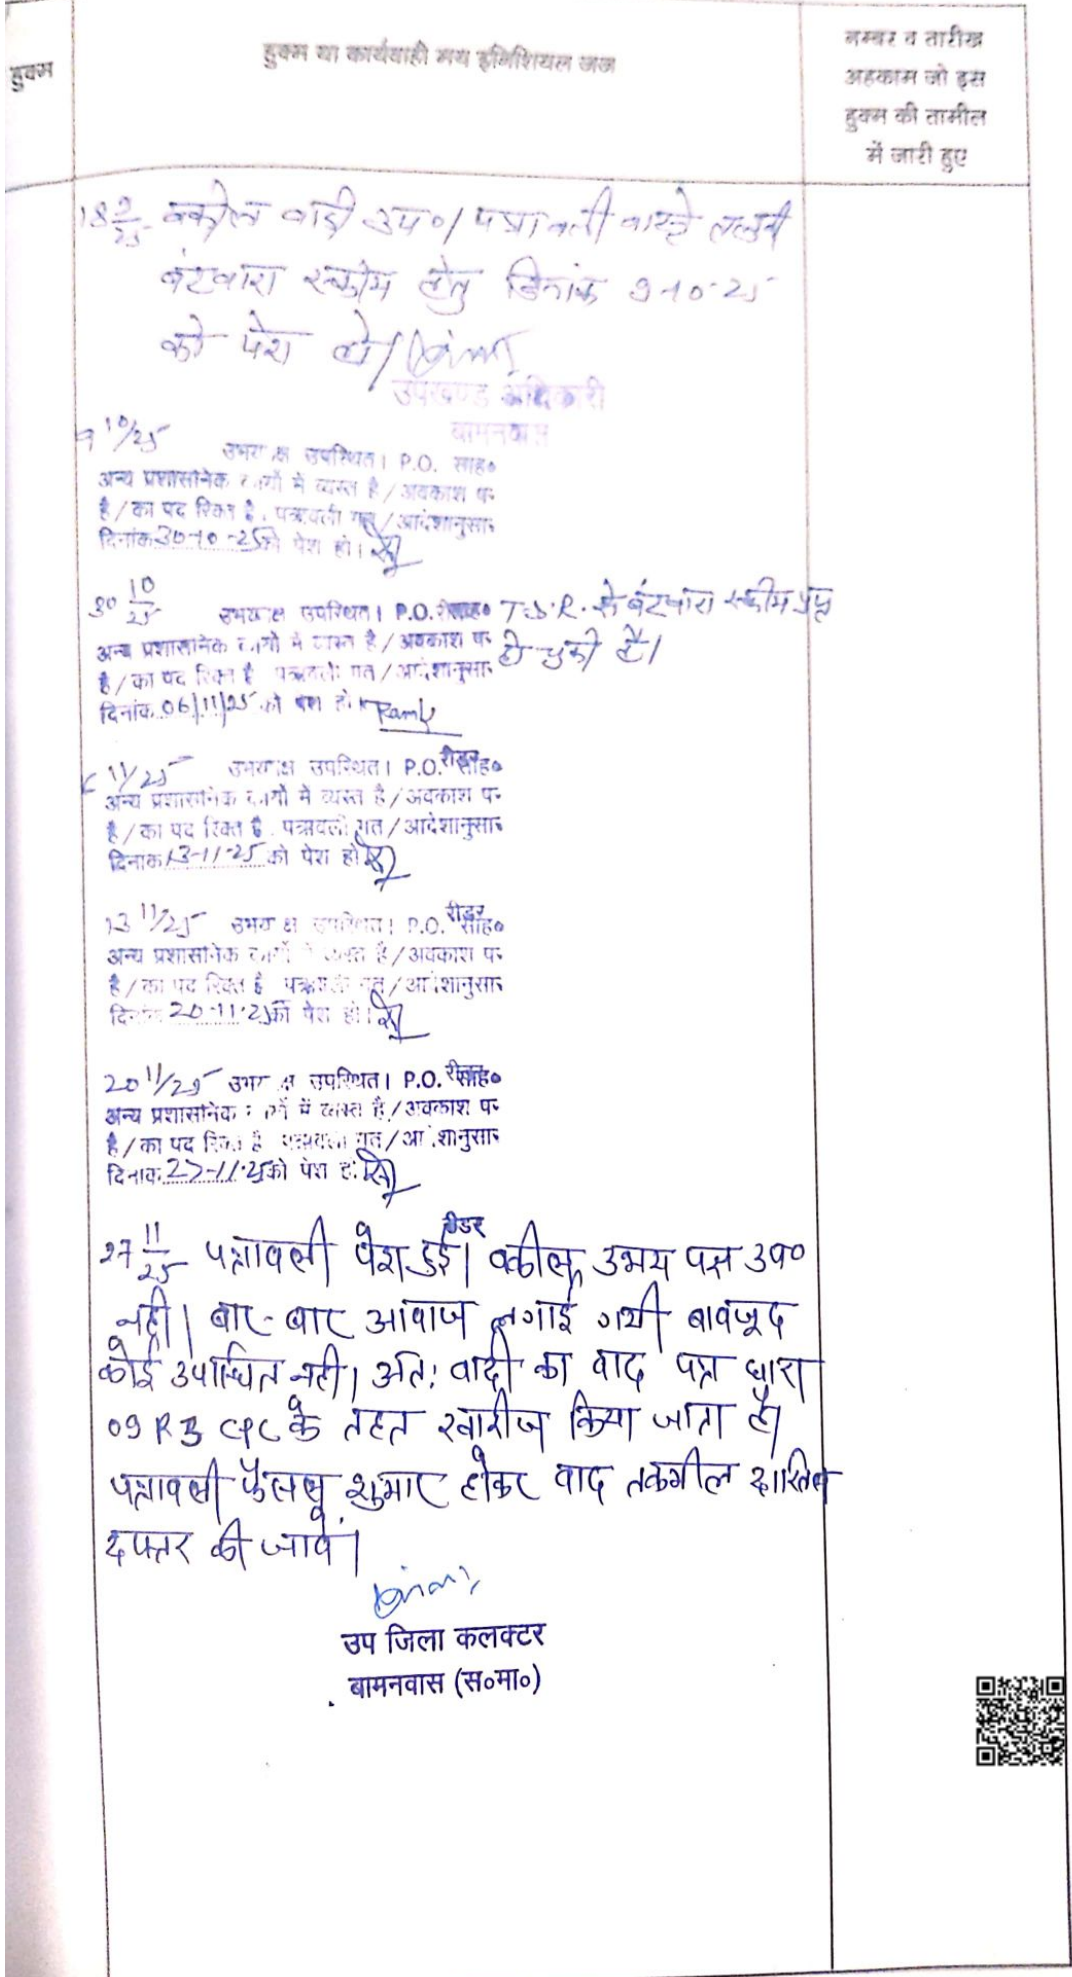 हुक्म
हुक्म या कार्यवाही मय इनिशियल जज
नम्बर व तारीख
अहकाम जो इस
हुक्म की तामील
में जारी हुए
18 9/25 वकील वादी उप०। पत्रावली वास्ते तलबी
बंटवारा स्कीम हेतु दिनांक 9-10-25
को पेश हो।
उपखण्ड अधिकारी
बामनवास
9 10/25 उभय क्ष उपस्थित। P.O. साह०
अन्य प्रशासनिक कार्यो में व्यस्त है/अवकाश पर
है/का पद रिक्त है. पत्रावली गत/आदेशानुसार
दिनांक 30-10-25 को पेश हो।
30 10/25 उभय क्ष उपस्थित। P.O. T.D.R. से बंटवारा स्कीम प्राप्त
अन्य प्रशासनिक कार्यो में व्यस्त है/अवकाश पर हो चुकी है।
है/का पद रिक्त है पत्रावली गत/आदेशानुसार
दिनांक 06/11/25 को पेश हो।
6 11/25 उभय क्ष उपस्थित। P.O. रीडर साह०
अन्य प्रशासनिक कार्यो में व्यस्त है/अवकाश पर
है/का पद रिक्त है. पत्रावली गत/आदेशानुसार
दिनांक 13-11-25 को पेश हो
13 11/25 उभय क्ष उपस्थित। P.O. रीडर साह०
अन्य प्रशासनिक कार्यो में व्यस्त है/अवकाश पर
है/का पद रिक्त है पत्रावली गत/आदेशानुसार
दिनांक 20-11-25 को पेश हो।
20 11/25 उभय क्ष उपस्थित। P.O. रीडर साह०
अन्य प्रशासनिक कार्यो में व्यस्त है/अवकाश पर
है/का पद रिक्त है पत्रावली गत/आदेशानुसार
दिनांक 27-11-25 को पेश हो
रीडर
27 11/25 पत्रावली पेश हुई। वकील उभय पक्ष उप०
नही। बार-बार आवाज लगाई गयी बावजूद
कोई उपस्थित नही। अतः वादी का वाद पत्र धारा
09 R 3 CPC के तहत खारीज किया जाता है।
पत्रावली फैसल शुमार होकर वाद तकमील दाखिल
दफ्तर की जावे।
उप जिला कलक्टर
बामनवास (स०मा०)